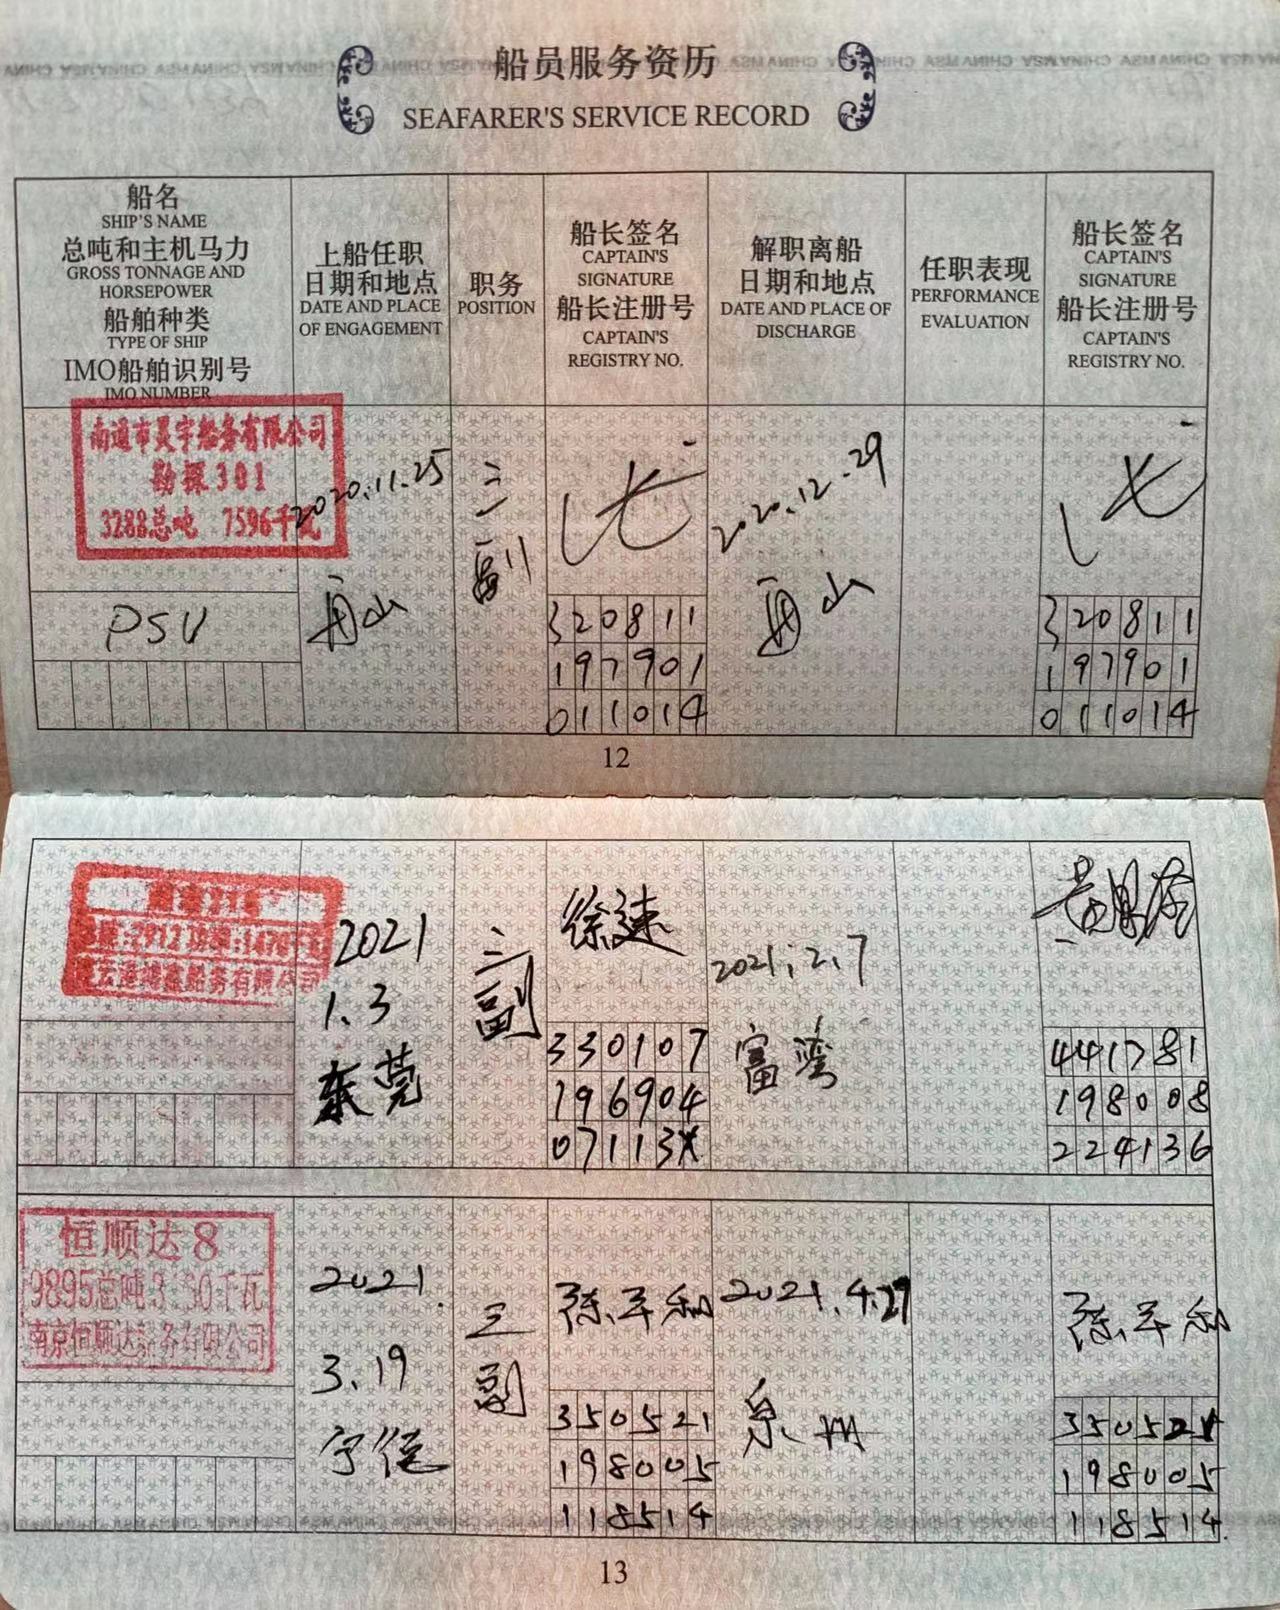 船员服务资历
SEAFARER'S SERVICE RECORD
船名
SHIP'S NAME
总吨和主机马力
GROSS TONNAGE AND
HORSEPOWER
船舶种类
TYPE OF SHIP
IMO船舶识别号
IMO NUMBER
上船任职
日期和地点
DATE AND PLACE
OF ENGAGEMENT
职务
POSITION
船长签名
CAPTAIN'S
SIGNATURE
船长注册号
CAPTAIN'S
REGISTRY NO.
解职离船
日期和地点
DATE AND PLACE OF
DISCHARGE
任职表现
PERFORMANCE
EVALUATION
船长签名
CAPTAIN'S
SIGNATURE
船长注册号
CAPTAIN'S
REGISTRY NO.
南通市昊宇船务有限公司
勘探301
3288总吨 7596千瓦
PSV
2020.11.25
舟山
三副
320811
197901
011014
2020.12.29
舟山
320811
197901
011014
12
2021
1.3
东莞
二副
徐速
330107
196904
07113X
2021.2.7
富湾
441781
198008
224136
恒顺达8
9895总吨
千瓦
南京恒顺达
务有限公司
2021.
3.19
宁德
三副
陈平和
350521
198005
118514
2021.4.27
泉州
陈平和
350521
198005
118514
13